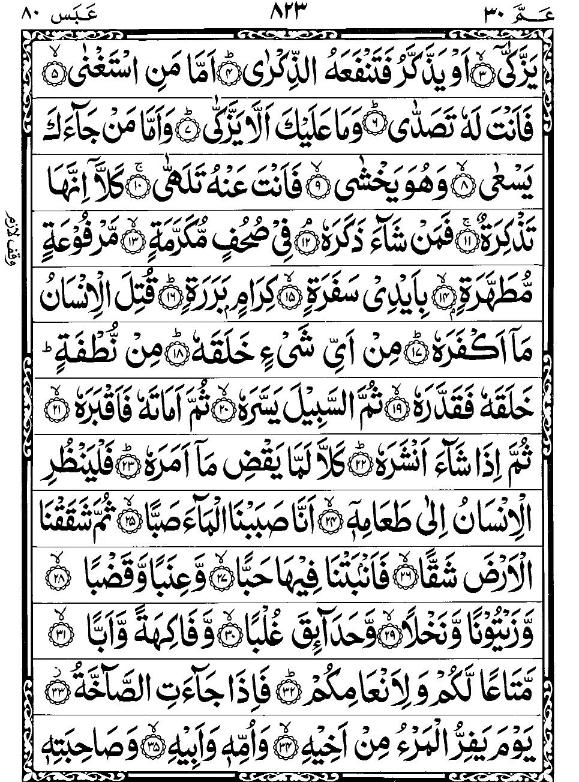 عَـمَّ ٣٠ ٨٢٣ عَبَسَ ٨٠
يَزَّكّٰىۤ ۙ﴿٣﴾ اَوْ يَذَّكَّرُ فَتَنْفَعَهُ الذِّكْرٰى ؕ﴿٤﴾ اَمَّا مَنِ اسْتَغْنٰى ۙ﴿٥﴾
فَاَنْتَ لَهٗ تَصَدّٰى ؕ﴿٦﴾ وَمَا عَلَيْكَ اَلَّا يَزَّكّٰى ؕ﴿٧﴾ وَاَمَّا مَنْ جَآءَكَ
يَسْعٰى ۙ﴿٨﴾ وَهُوَ يَخْشٰى ۙ﴿٩﴾ فَاَنْتَ عَنْهُ تَلَهّٰى ۚ﴿١٠﴾ كَلَّاۤ اِنَّهَا
تَذْكِرَةٌ ۚ﴿١١﴾ فَمَنْ شَآءَ ذَكَرَهٗ ۘ﴿١٢﴾ فِىْ صُحُفٍ مُّكَرَّمَةٍ ۙ﴿١٣﴾ مَّرْفُوْعَةٍ
وقف لازم
مُّطَهَّرَةٍۭ ۙ﴿١٤﴾ بِاَيْدِىْ سَفَرَةٍ ۙ﴿١٥﴾ كِرَامٍۭ بَرَرَةٍ ؕ﴿١٦﴾ قُتِلَ الْاِنْسَانُ
مَاۤ اَكْفَرَهٗ ؕ﴿١٧﴾ مِنْ اَىِّ شَىْءٍ خَلَقَهٗ ؕ﴿١٨﴾ مِنْ نُّطْفَةٍ ؕ
خَلَقَهٗ فَقَدَّرَهٗ ۙ﴿١٩﴾ ثُمَّ السَّبِيْلَ يَسَّرَهٗ ۙ﴿٢٠﴾ ثُمَّ اَمَاتَهٗ فَاَقْبَرَهٗ ۙ﴿٢١﴾
ثُمَّ اِذَا شَآءَ اَنْشَرَهٗ ؕ﴿٢٢﴾ كَلَّا لَمَّا يَقْضِ مَاۤ اَمَرَهٗ ؕ﴿٢٣﴾ فَلْيَنْظُرِ
الْاِنْسَانُ اِلٰى طَعَامِهٖۤ ۙ﴿٢٤﴾ اَنَّا صَبَبْنَا الْمَآءَ صَبًّا ۙ﴿٢٥﴾ ثُمَّ شَقَقْنَا
الْاَرْضَ شَقًّا ۙ﴿٢٦﴾ فَاَنْۢبَتْنَا فِيْهَا حَبًّا ۙ﴿٢٧﴾ وَّعِنَبًا وَّقَضْبًا ۙ﴿٢٨﴾
وَّزَيْتُوْنًا وَّنَخْلًا ۙ﴿٢٩﴾ وَّحَدَآئِقَ غُلْبًا ۙ﴿٣٠﴾ وَّفَاكِهَةً وَّاَبًّا ۙ﴿٣١﴾
مَّتَاعًا لَّكُمْ وَلِاَنْعَامِكُمْ ؕ﴿٣٢﴾ فَاِذَا جَآءَتِ الصَّآخَّةُ ز﴿٣٣﴾
يَوْمَ يَفِرُّ الْمَرْءُ مِنْ اَخِيْهِ ۙ﴿٣٤﴾ وَاُمِّهٖ وَاَبِيْهِ ۙ﴿٣٥﴾ وَصَاحِبَتِهٖ